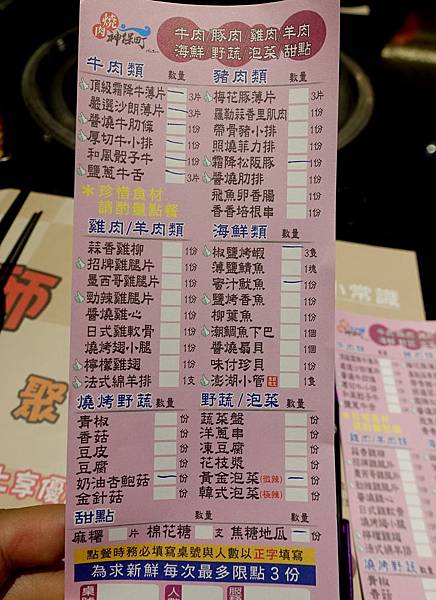 燒肉神保町
牛肉 豚肉 雞肉 羊肉
海鮮 野蔬 泡菜 甜點
牛肉類 數量
頂級霜降牛薄片 一 3片
嚴選沙朗薄片 一 3片
醬燒牛肋條 一 1份
厚切牛小排 一 1份
和風骰子牛 1份
鹽蔥牛舌 一 3片
*珍惜食材
請酌量點餐
豬肉類 數量
梅花豚薄片 3片
羅勒蒜香里肌肉 1份
帶骨豬小排 1份
照燒菲力排 1份
霜降松阪豚 一 1份
醬燒肋排 1份
飛魚卵香腸 1份
香香培根串 1份
雞肉/羊肉類 數量
蒜香雞柳 1份
招牌雞腿片 1份
墨西哥雞腿片 1份
勁辣雞腿片 1份
醬燒雞心 1份
日式雞軟骨 1份
燒烤翅小腿 1份
檸檬雞翅 1份
法式綿羊排 1支
海鮮類 數量
椒鹽烤蝦 一 3隻
薄鹽鯖魚 1塊
蜜汁魷魚 一 1份
鹽烤香魚 1份
柳葉魚 1份
潮鯛魚下巴 1個
醬燒扇貝 1個
味付珍貝 1份
澎湖小管 1隻
燒烤野蔬 數量
青椒 份
香菇 份
豆皮 份
豆腐 份
奶油杏鮑菇 一 份
金針菇 份
野蔬/泡菜 數量
蔬菜盤 份
洋蔥串 份
凍豆腐 份
花枝漿 份
黃金泡菜(微辣) 一 份
韓式泡菜(極辣) 份
甜點 數量 數量 數量
麻糬 片 棉花糖 支 焦糖地瓜 一 份
點餐時務必填寫桌號與人數以正字填寫
為求新鮮 每次最多限點3份
小常識
師
聚
上享優